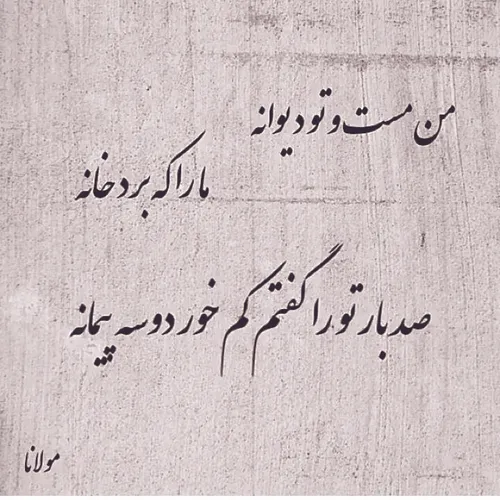 من مست و تو دیوانه
ما را که برد خانه
صد بار تو را گفتم کم خور دو سه پیمانه
مولانا